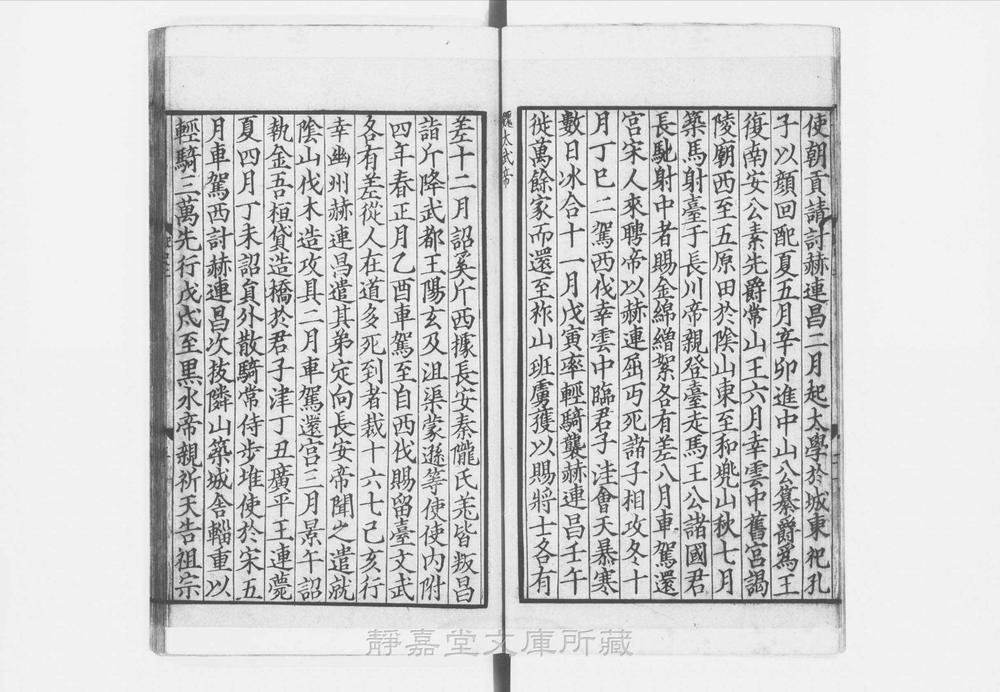 使朝貢請討赫連昌二月起太學於城東祀孔
子以顏回配夏五月辛卯進中山公纂爵爲王
復南安公素先爵常山王六月幸雲中舊宮謁
陵廟西至五原田於陰山東至和兠山秋七月
築馬射臺于長川帝親登臺走馬王公諸國君
長馳射中者賜金綿繒絮各有差八月車駕還
宮宋人來聘帝以赫連屈丐死諸子相攻冬十
月丁巳二駕西伐幸雲中臨君子津會天暴寒
數日冰合十一月戊寅率輕騎襲赫連昌壬午
徙萬餘家而還至祚山班虜獲以賜將士各有
魏太武帝
差十二月詔奚斤西據長安秦隴氐羌皆叛昌
詣斤降武都王陽玄及沮渠蒙遜等使使內附
四年春正月乙酉車駕至自西伐賜留臺文武
各有差從人在道多死到者裁十六七已亥行
幸幽州赫連昌遣其弟定向長安帝聞之遣就
陰山伐木造攻具二月車駕還宮三月景午詔
執金吾桓貸造橋於君子津丁丑廣平王連薨
夏四月丁未詔貟外散騎常侍步堆使於宋五
月車駕西討赫連昌次拔隣山築城舍輜重以
輕騎三萬先行戊戌至黑水帝親祈天告祖宗
靜嘉堂文庫所藏